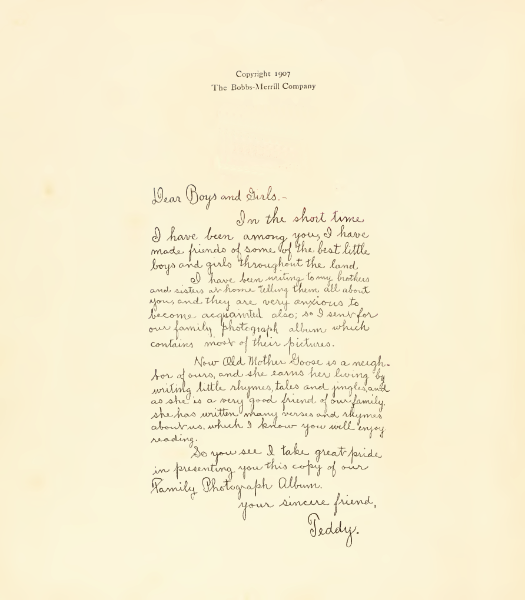 Copyright 1907
The Bobbs-Merrill Company
Dear Boys and Girls.-
In the short time
I have been among you, I have
made friends of some of the best little
boys and girls throughout the land.
I have been writing to my brothers
and sisters at home telling them all about
you, and they are very anxious to
become acquainted also; so I sent for
our family photograph album which
contains most of their pictures.
Now Old Mother Goose is a neigh-
bor of ours, and she earns her living by
writing little rhymes, tales and jingles, and
as she is a very good friend of our family,
she has written many verses and rhymes
about us, which I know you will enjoy
reading.
So you see I take great pride
in presenting you this copy of our
Family Photograph Album.
your sincere friend,
Teddy.